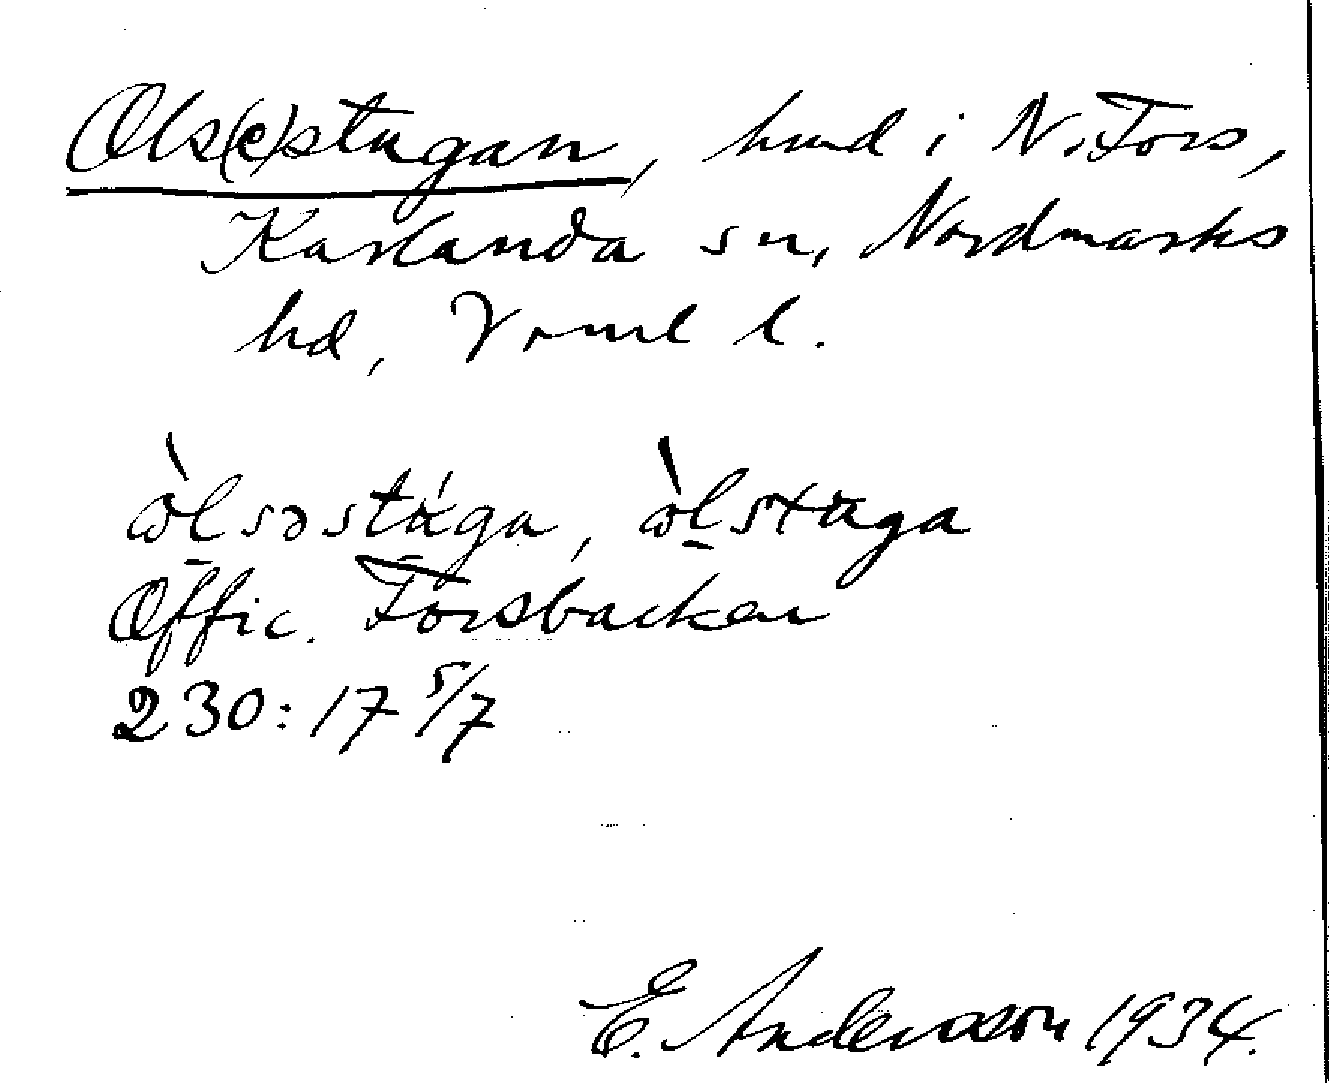 Ols(e)stugan, hmd i N. Fors,
Karlanda sn, Nordmarks
hd, Vrml l.
ɷ̀l̠səstúga, ɷ̀l̠stuga
Offic. Forsbacken
230:17 5/7
E. Andersson 1934.